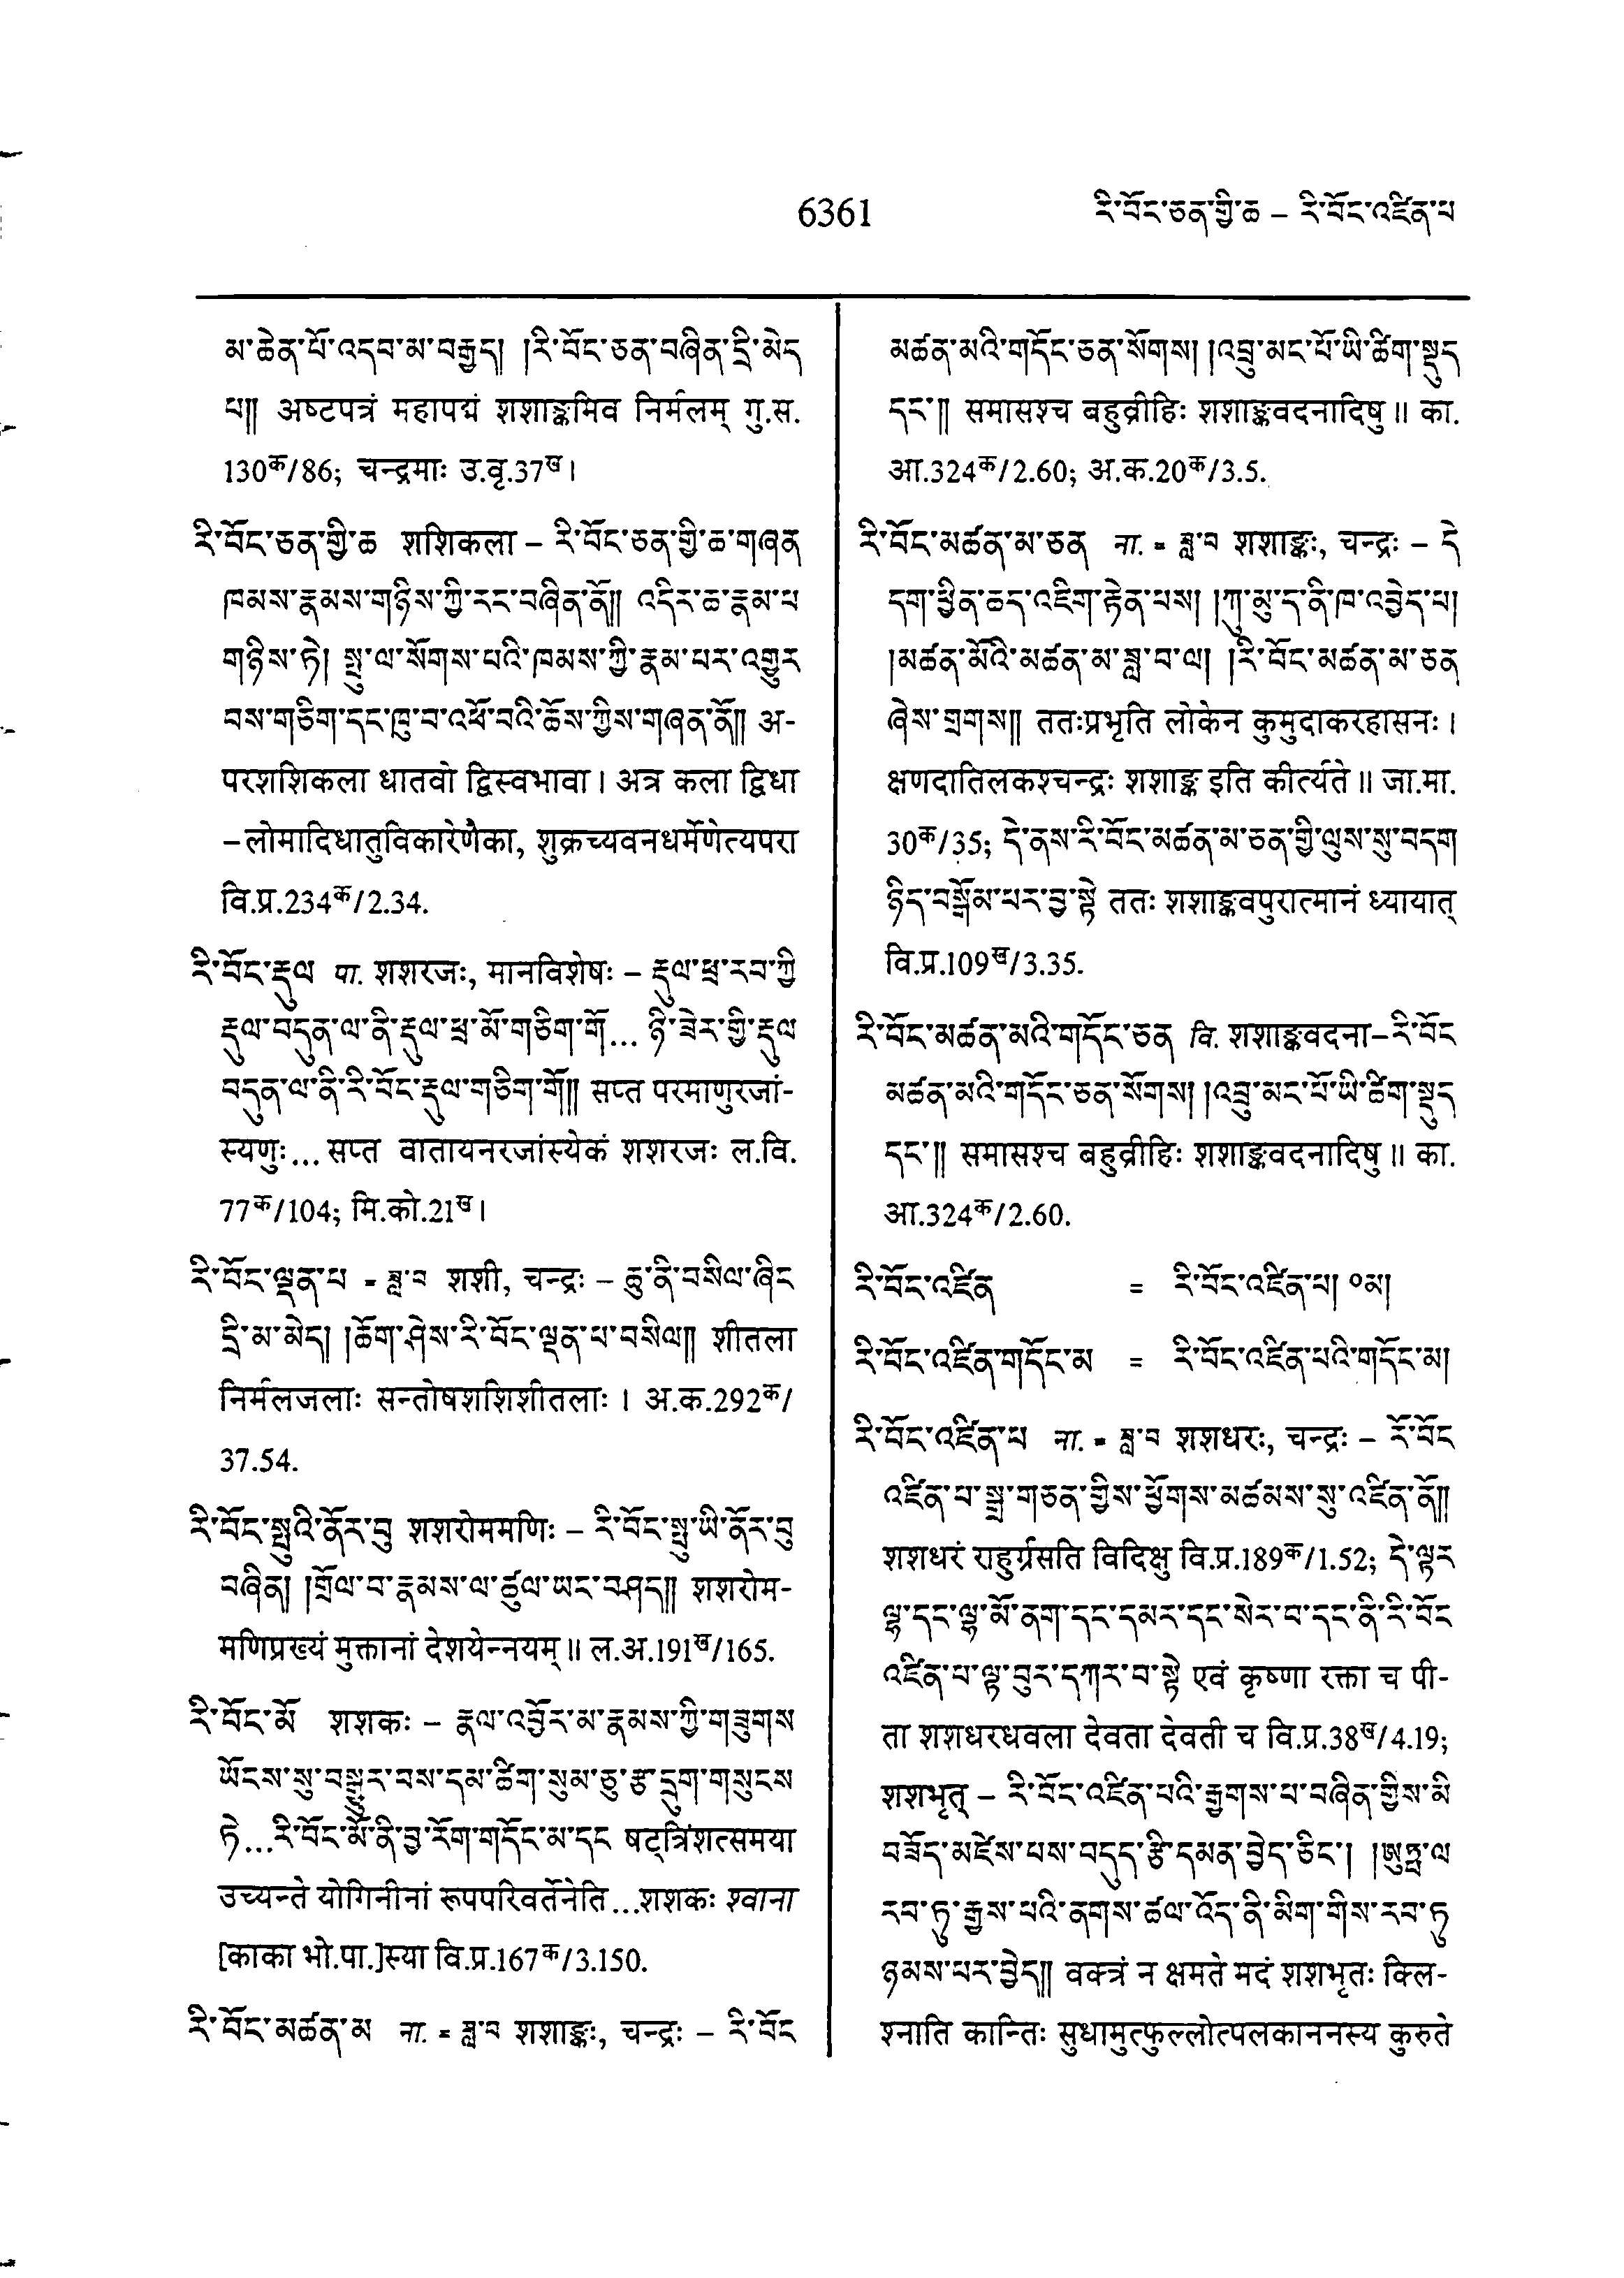 6361 རི་བོང་ཅན་གྱི་ཆ – རི་བོང་འཛིན་པ
མ་ཆེན་པོ་འདབ་མ་བརྒྱད། །རི་བོང་ཅན་བཞིན་དྲི་མེད
པ།། अष्टपत्रं महापद्मं शशाङ्कमिव निर्मलम् गु.स.
130क/86; चन्द्रमाः उ.वृ.37ख।
རི་བོང་ཅན་གྱི་ཆ शशिकला – རི་བོང་ཅན་གྱི་ཆ་གཞན
ཁམས་རྣམས་གཉིས་ཀྱི་རང་བཞིན་ནོ།། འདིར་ཆ་རྣམ་པ
གཉིས་ཏེ། སྤུ་ལ་སོགས་པའི་ཁམས་ཀྱི་རྣམ་པར་འགྱུར
བས་གཅིག་དང་ཁུ་བ་འཕོ་བའི་ཆོས་ཀྱིས་གཞན་ནོ།། अ-
परशशिकला धातवो द्विस्वभावा। अत्र कला द्विधा
–लोमादिधातुविकारेणैका, शुक्रच्यवनधर्मेणेत्यपरा
वि.प्र.234क/2.34.
རི་བོང་རྡུལ पा. शशरजः, मानविशेषः – རྡུལ་ཕྲ་རབ་ཀྱི
རྡུལ་བདུན་ལ་ནི་རྡུལ་ཕྲ་མོ་གཅིག་གོ... ཉི་ཟེར་གྱི་རྡུལ
བདུན་ལ་ནི་རི་བོང་རྡུལ་གཅིག་གོ།། सप्त परमाणुरजां-
स्यणुः... सप्त वातायनरजांस्येकं शशरजः ल.वि.
77क/104; मि.को.21ख।
རི་བོང་ལྡན་པ = ཟླ་བ शशी, चन्द्रः – ཆུ་ནི་བསིལ་ཞིང
དྲི་མ་མེད། །ཆོག་ཤེས་རི་བོང་ལྡན་པ་བསིལ།། शीतला
निर्मलजलाः सन्तोषशशिशीतलाः। अ.क.292क/
37.54.
རི་བོང་སྤུའི་ནོར་བུ शशरोममणिः – རི་བོང་སྤུ་ཡི་ནོར་བུ
བཞིན། །གྲོལ་བ་རྣམས་ལ་ཚུལ་ཡང་བཤད།། शशरोम-
मणिप्रख्यं मुक्तानां देशयेन्नयम्॥ ल.अ.191ख/165.
རི་བོང་མོ शशकः – རྣལ་འབྱོར་མ་རྣམས་ཀྱི་གཟུགས
ཡོངས་སུ་བསྒྱུར་བས་དམ་ཚིག་སུམ་ཅུ་རྩ་དྲུག་གསུངས
ཏེ...རི་བོང་མོ་ནི་བྱ་རོག་གདོང་མ་དང षट्त्रिंशत्समया
उच्यन्ते योगिनीनां रूपपरिवर्तेनेति...शशकः श्वाना
[काका भो.पा.]स्या वि.प्र.167क/3.150.
རི་བོང་མཚན་མ ना. = ཟླ་བ शशाङ्कः, चन्द्रः – རི་བོང
མཚན་མའི་གདོང་ཅན་སོགས། །འབྲུ་མང་པོ་ཡི་ཚིག་སྡུད
དང་།། समासश्च बहुव्रीहिः शशाङ्कवदनादिषु॥ का.
आ.324क/2.60; अ.क.20क/3.5.
རི་བོང་མཚན་མ་ཅན ना. = ཟླ་བ शशाङ्कः, चन्द्रः – དེ
དག་ཕྱིན་ཆད་འཇིག་རྟེན་པས། །ཀུ་མུ་ད་ནི་ཁ་འབྱེད་པ།
།མཚན་མོའི་མཚན་མ་ཟླ་བ་ལ། །རི་བོང་མཚན་མ་ཅན
ཞེས་གྲགས།། ततःप्रभृति लोकेन कुमुदाकरहासनः।
क्षणदातिलकश्चन्द्रः शशाङ्क इति कीर्त्यते॥ जा.मा.
30क/35; དེ་ནས་རི་བོང་མཚན་མ་ཅན་གྱི་ལུས་སུ་བདག
ཉིད་བསྒོམ་པར་བྱ་སྟེ ततः शशाङ्कवपुरात्मानं ध्यायात्
वि.प्र.109ख/3.35.
རི་བོང་མཚན་མའི་གདོང་ཅན वि. शशाङ्कवदना–རི་བོང
མཚན་མའི་གདོང་ཅན་སོགས། །འབྲུ་མང་པོ་ཡི་ཚིག་སྡུད
དང་།། समासश्च बहुव्रीहिः शशाङ्कवदनादिषु॥ का.
आ.324क/2.60.
རི་བོང་འཛིན = རི་བོང་འཛིན་པ། ༠མ།
རི་བོང་འཛིན་གདོང་མ = རི་བོང་འཛིན་པའི་གདོང་མ།
རི་བོང་འཛིན་པ ना. = ཟླ་བ शशधरः, चन्द्रः – རོ་བོང
འཛིན་པ་སྒྲ་གཅན་གྱིས་ཕྱོགས་མཚམས་སུ་འཛིན་ནོ།།
शशधरं राहुर्ग्रसति विदिक्षु वि.प्र.189क/1.52; དེ་ལྟར
ལྷ་དང་ལྷ་མོ་ནག་དང་དམར་དང་སེར་བ་དང་ནི་རི་བོང
འཛིན་པ་ལྟ་བུར་དཀར་བ་སྟེ एवं कृष्णा रक्ता च पी-
ता शशधरधवला देवता देवती च वि.प्र.38ख/4.19;
शशभृत् – རི་བོང་འཛིན་པའི་རྒྱགས་པ་བཞིན་གྱིས་མི
བཟོད་མཛེས་པས་བདུད་རྩི་དམན་བྱེད་ཅིང་། །ཨུཏྤ་ལ
རབ་ཏུ་རྒྱས་པའི་ནགས་ཚལ་འོད་ནི་མིག་གིས་རབ་ཏུ
ཉམས་པར་བྱེད།། वक्त्रं न क्षमते मदं शशभृतः क्लि-
श्नाति कान्तिः सुधामुत्फुल्लोत्पलकाननस्य कुरुते